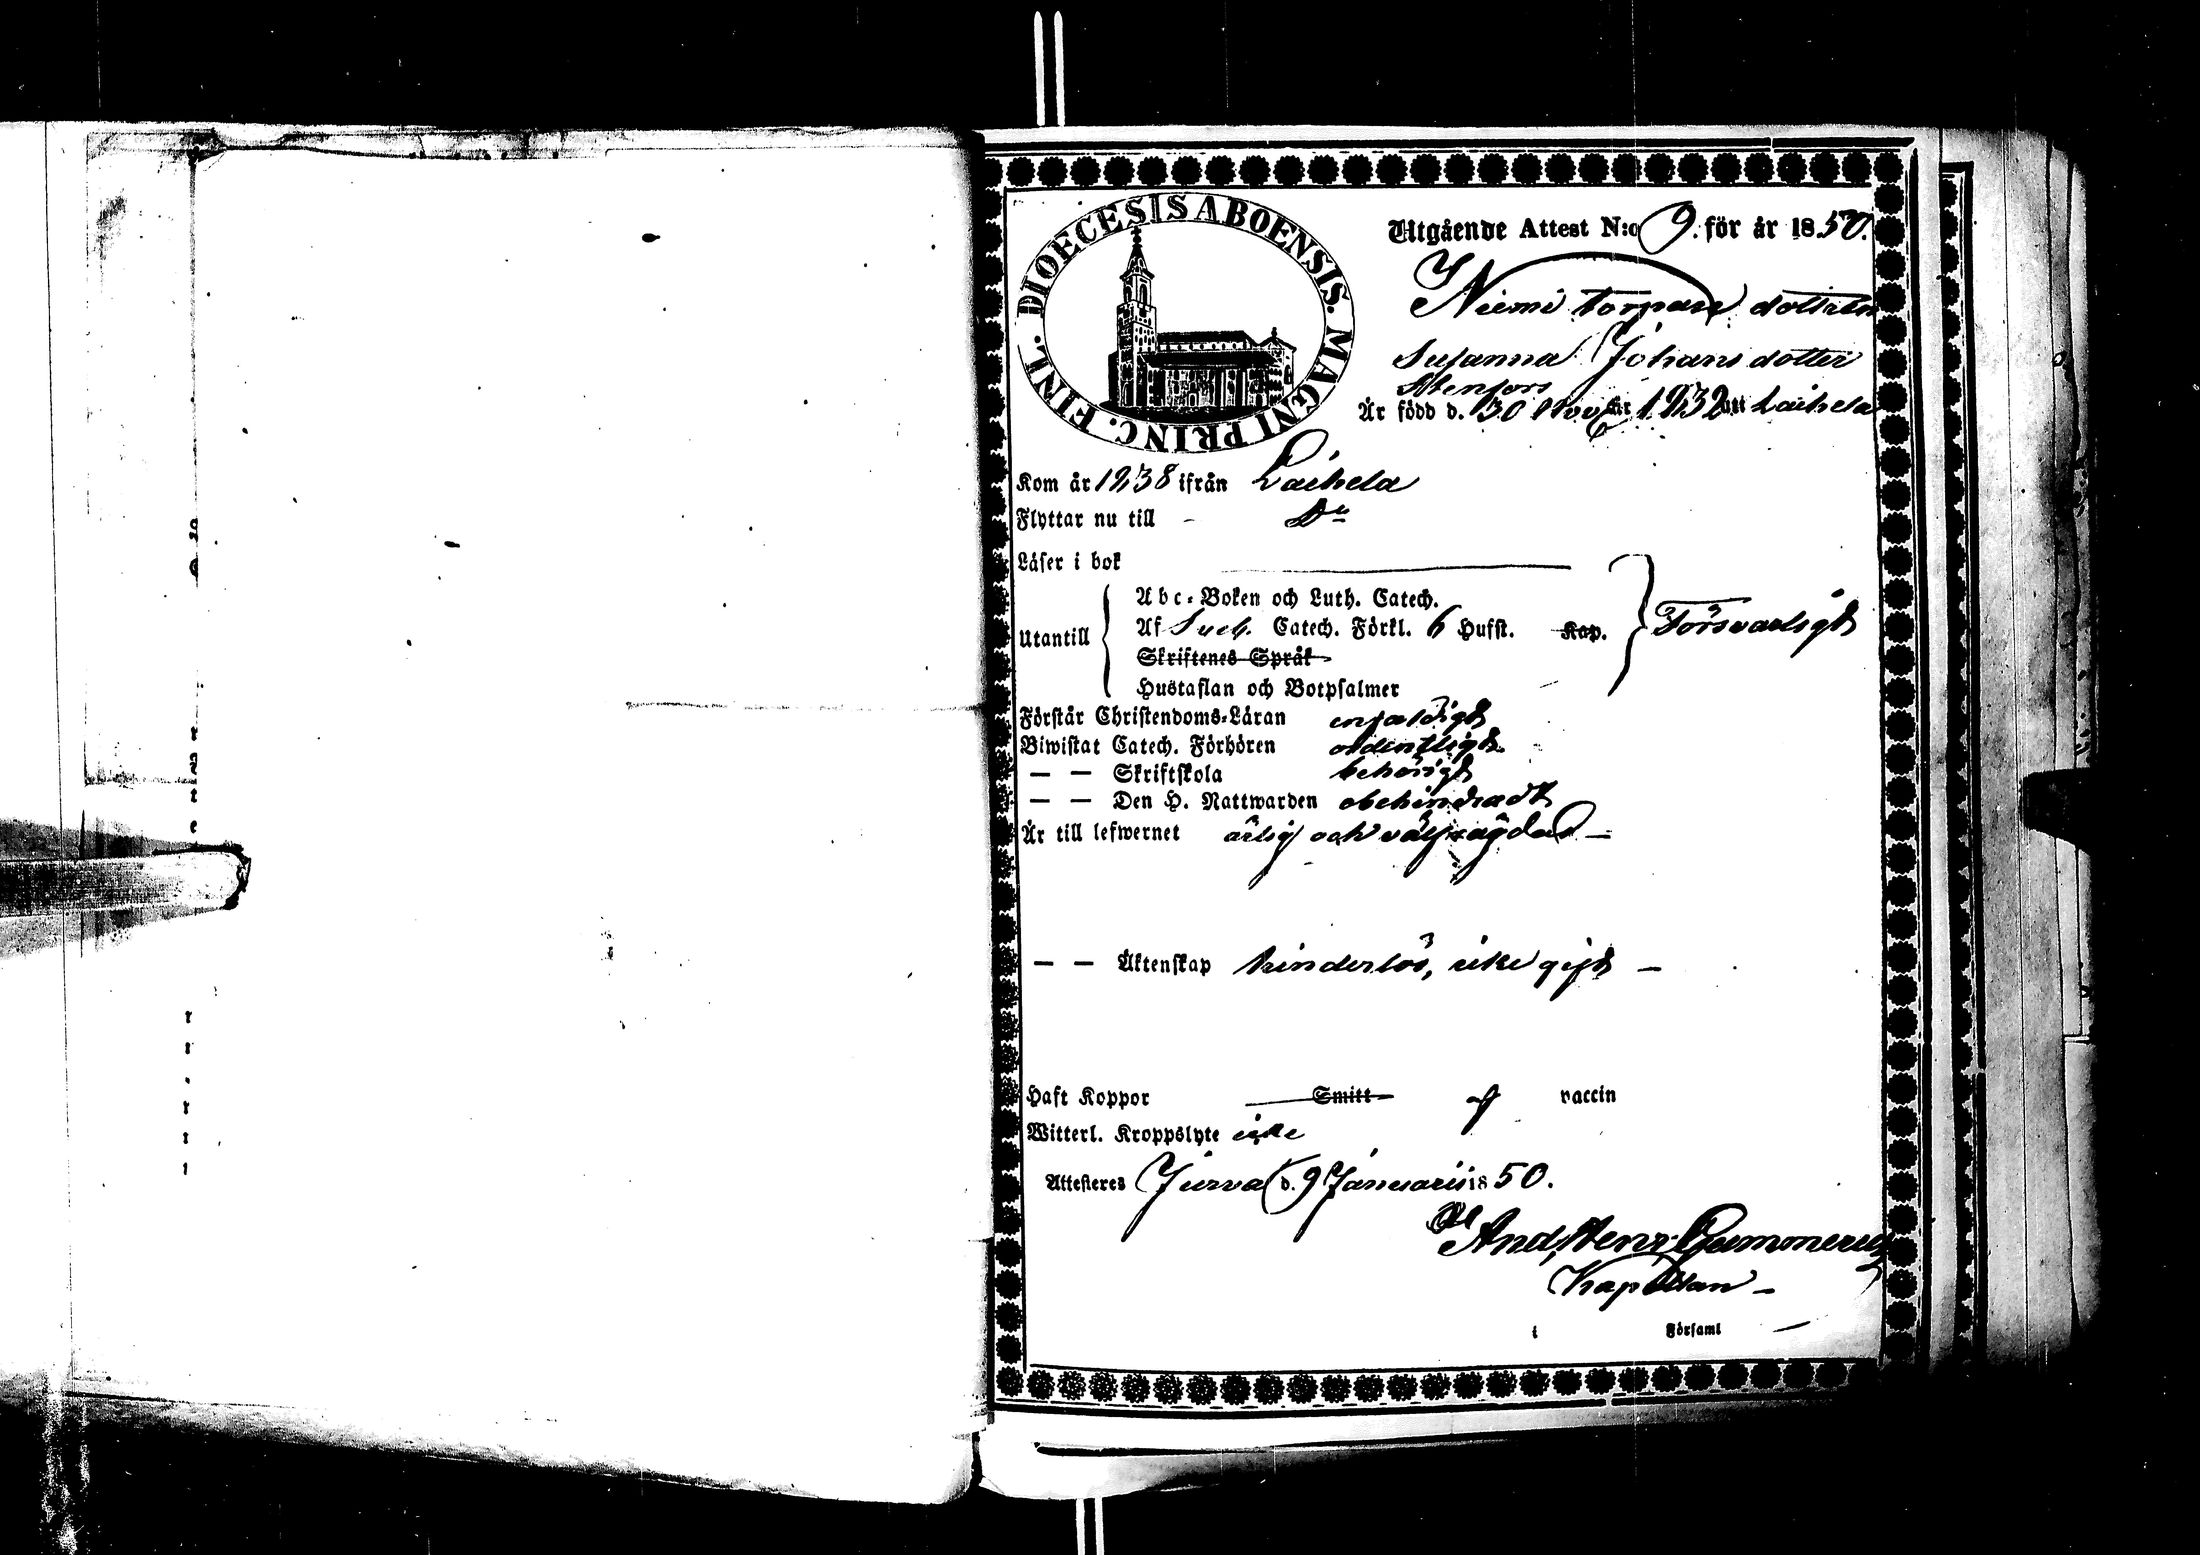 DIOECESIS ABOENSIS. MAGNI PRINC. FINL.
Utgående Attest N:o 9. för år 1850.
Niemi torpare dottren
Susanna Johansdotter
Stenfors
Är född d. 30 Nov år 1832 uti Laihela
Kom år 1838 ifrån Laihela
Flyttar nu till - Do
Läser i bok
Abc-Boken och Luth. Catech.
Utantill Af Sveb. Catech. Förkl. 6 Hufst. Kap. Försvarligt
Skriftenes Språk
Hustaflan och Botpsalmer
Förstår Christendoms-Läran enfaldigt
Biwistat Catech. Förhören ordentligt
— — Skriftskola behörigt
— — Den H. Nattwarden obehindradt
Är till lefwernet ärlig och välfrägdad —
— — Äktenskap hinderlös, icke gift —
Haft Koppor Smitt af vaccin
Witterl. Kroppslyte icke
Attesteres Jurva d. 9 Januarii 1850.
And. Henr. Gummerus
Kapellan —
i Församl